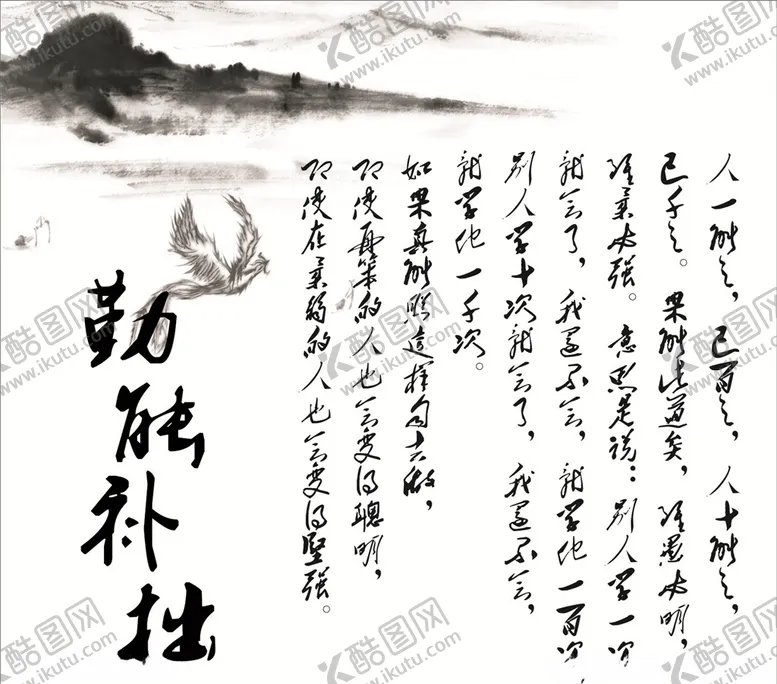 人一能之，己百之，人十能之，
己千之。果能此道矣，雖愚必明，
雖柔必强。意思是说：别人学一次
就会了，我還不会，就学他一百次，
别人学十次就会了，我還不会，
就学他一千次。
如果真能照這样去做，
即使再笨的人也会变得聰明，
即使在柔弱的人也会变得堅强。
勤能补拙
酷图网
www.ikutu.com